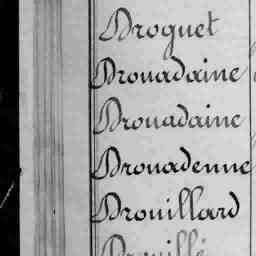 Droguet
Drouadaine
Drouadaine
Drouadenne
Drouillard
Drouillé